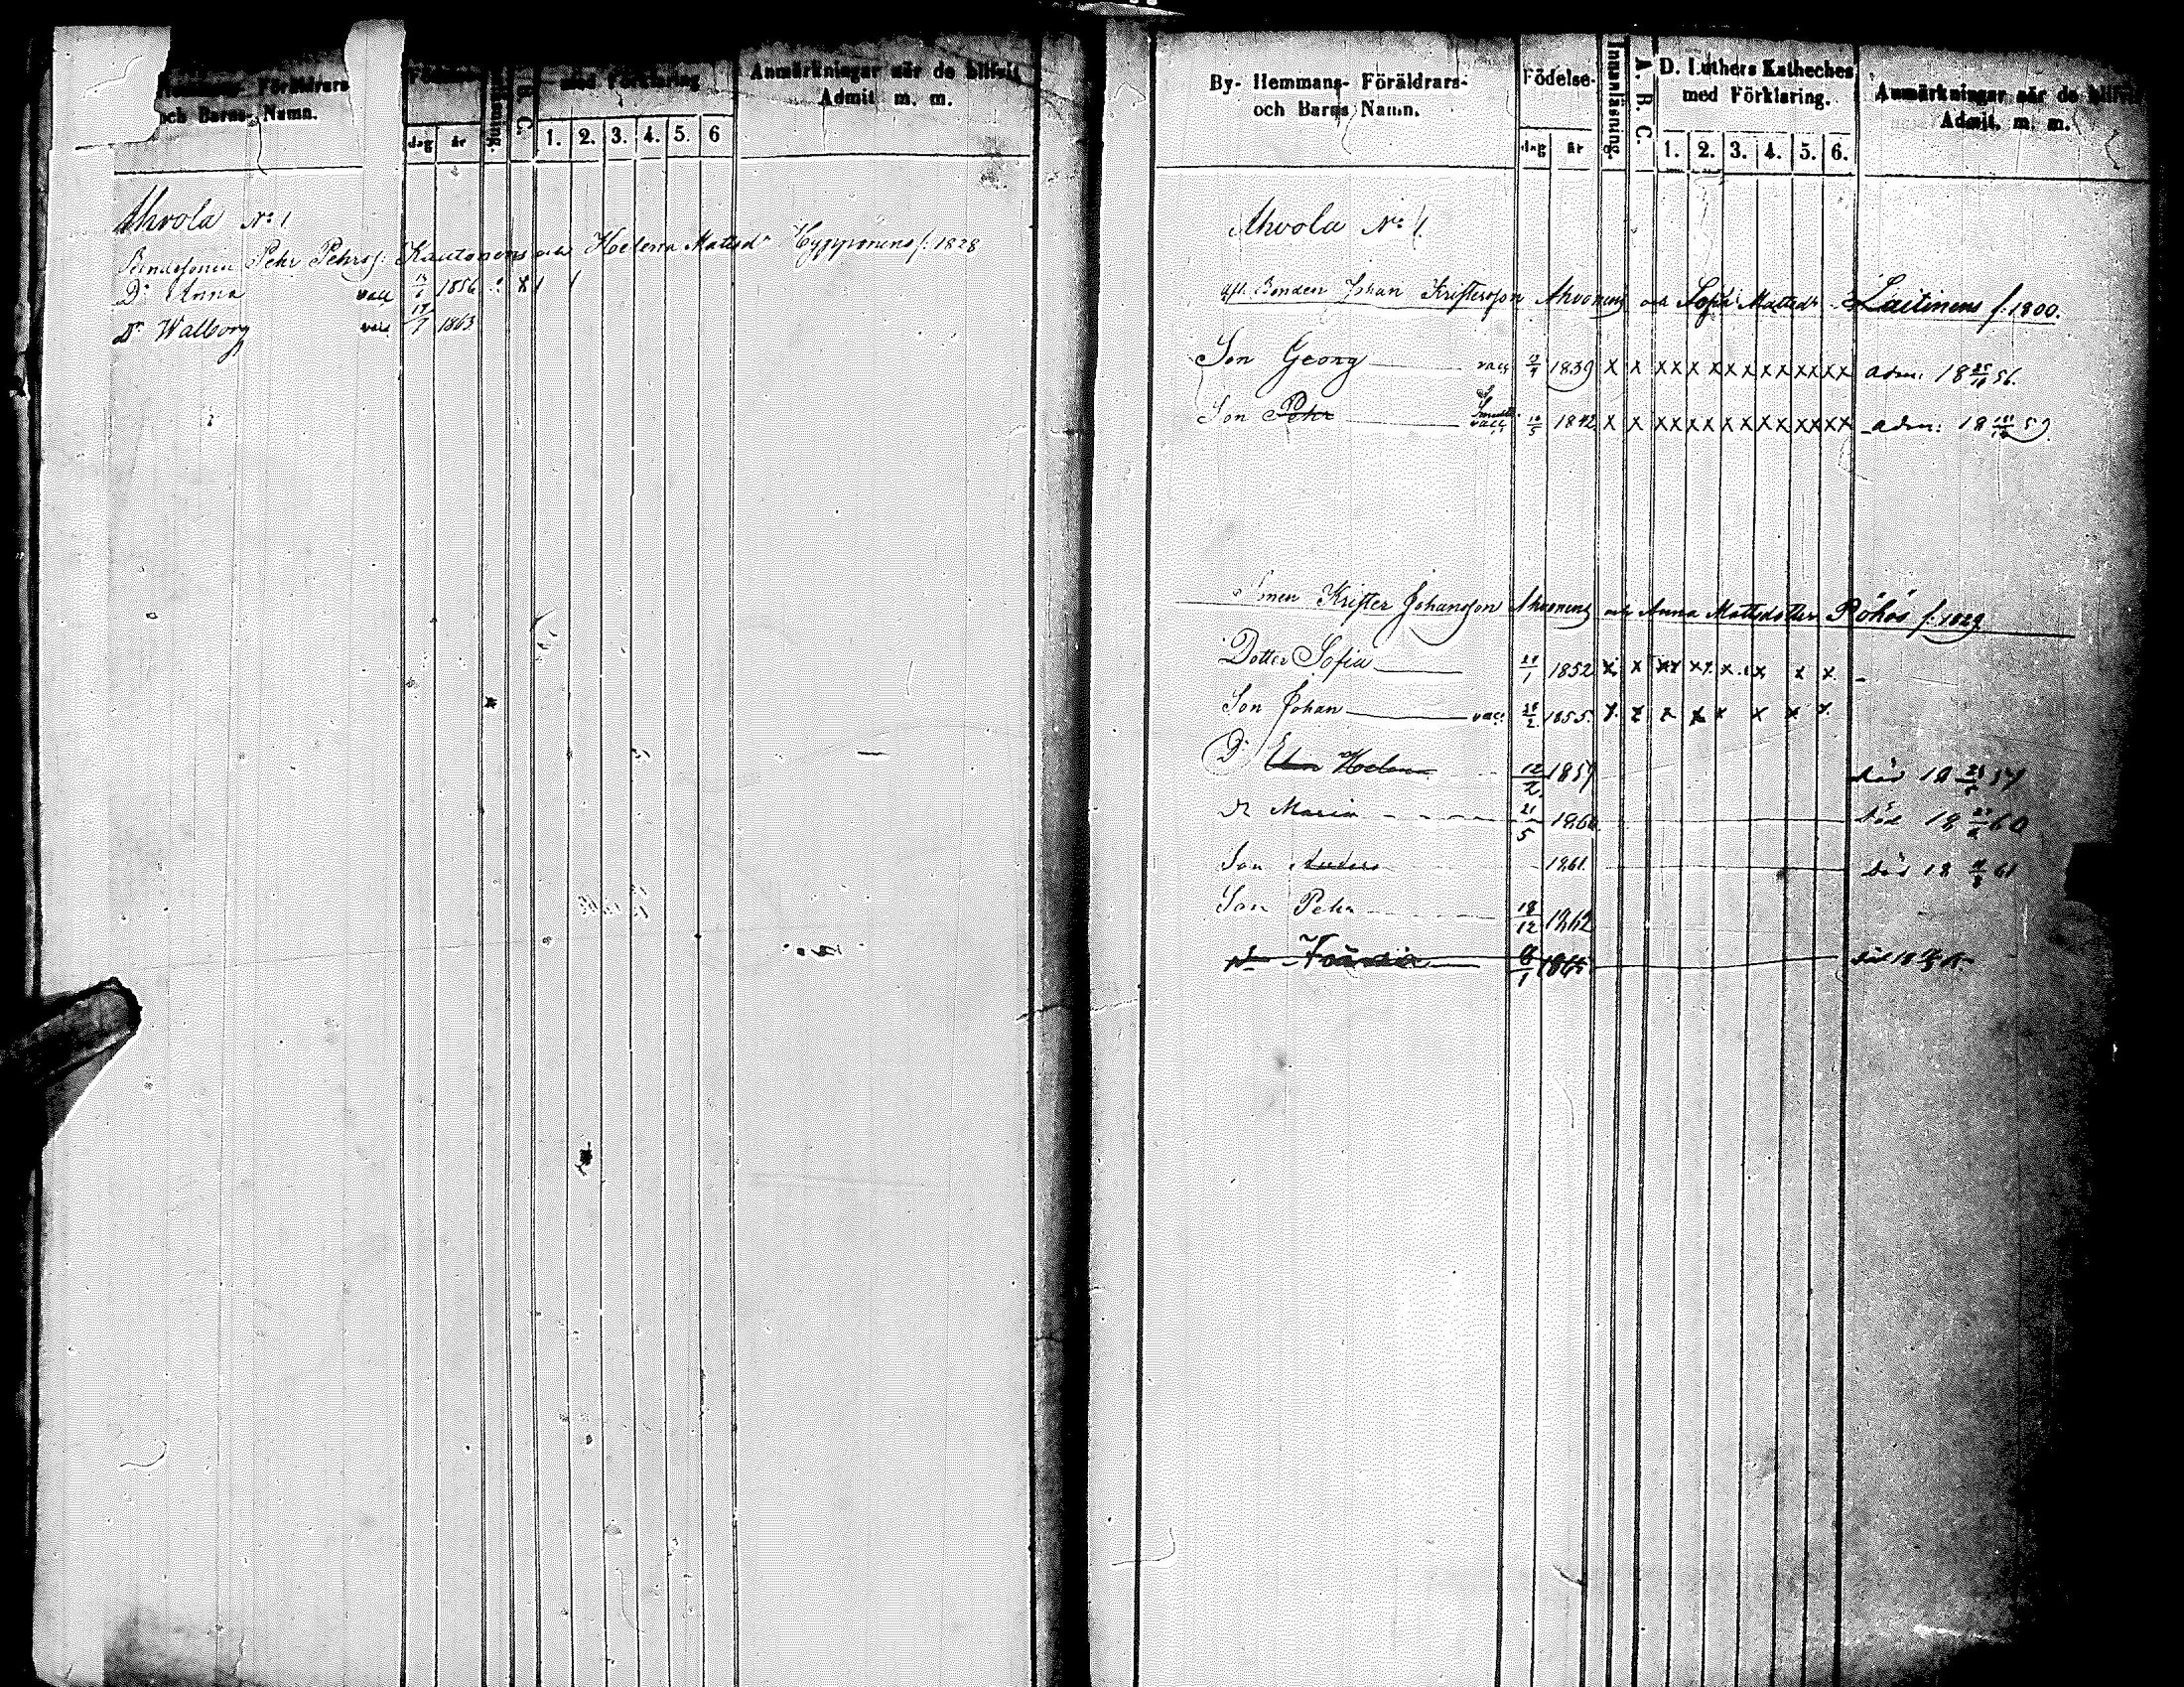 Föräldrars
och Barns Namn.
dag år
A. B. C.
med Förklaring
1. 2. 3. 4. 5. 6
Anmärkningar när de blifvit
Admit m. m.
Ahvola No 1
Pehr Pehrs. Kautonens och Helena Mattsdr Hypponens f. 1828
Dr Anna vacc 1856
Dr Walborg vacc 17/7 1863
By- Hemmans- Föräldrars-
och Barns Namn.
Födelse-
dag år
Innanläsning.
A. B. C.
D. Luthers Katheches
med Förklaring.
1. 2. 3. 4. 5. 6.
Anmärkningar när de blifvit
Admit. m. m.
Ahvola No 1
afl. Bonden Johan Kristersson Ahvonens och Sofia Mattsdr Laitinens f. 1800.
Son Georg vacc 1839 x x xx xx xx xx xx xx adm: 18 56.
Son Pehr vacc 1842 x x xx xx xx xx xx xx adm: 18 59
Krister Johansson Ahvonens och Anna Mattsdotter Röhös f. 1829
Dotter Sofia 21/1 1852 x x xx xx x x x x
Son Johan vacc 28/2 1855. x x x x x x x x
Dr Helena 12/2 1857 död 18 57
Dr Maria 21/5 1860 död 18 60
Son Anders 1861 död 18 61
Son Pehr 18/12 1862
6/1 1865